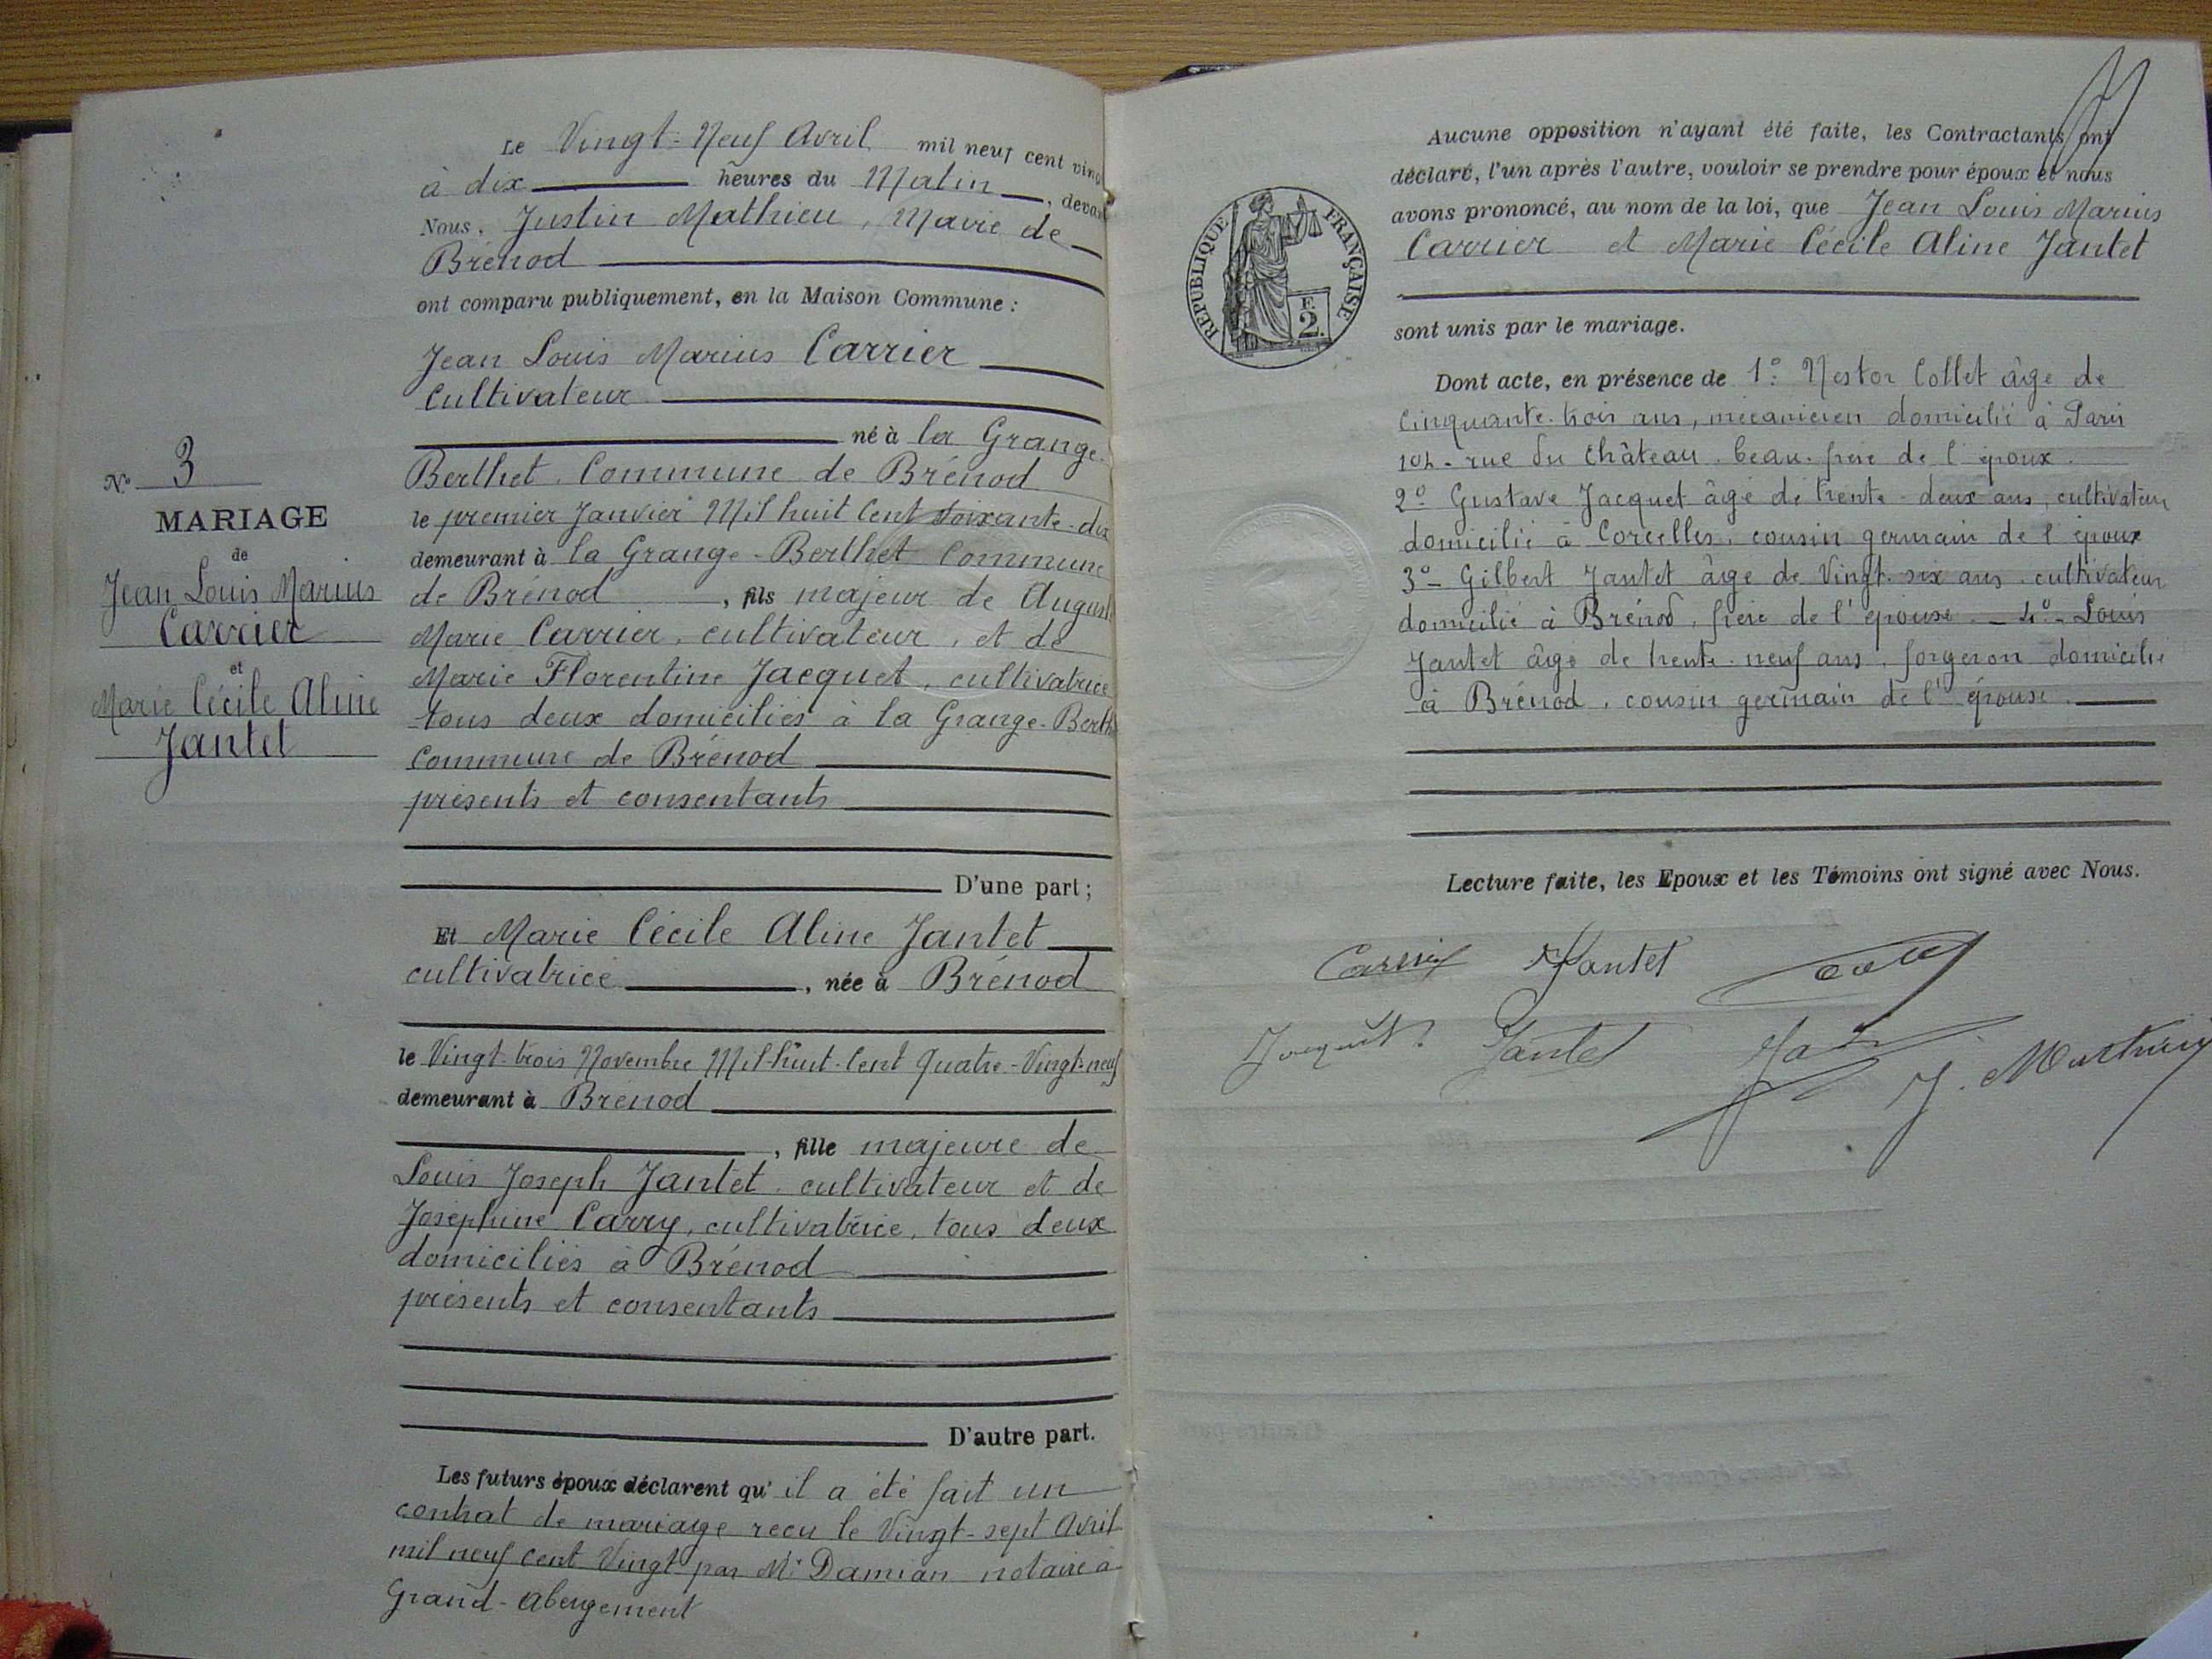 Le Vingt-Neuf Avril mil neuf cent vingt
à dix heures du Matin, devant
Nous, Justin Mathieu, Maire de
Brénod
ont comparu publiquement, en la Maison Commune :
Jean Louis Marius Carrier
Cultivateur
né à la Grange-
Berthet Commune de Brénod
le premier Janvier Mil huit Cent Soixante-dix
demeurant à la Grange-Berthet Commune
de Brénod, fils majeur de August
Marie Carrier, cultivateur, et de
Marie Florentine Jacquet, cultivatrice
tous deux domiciliés à la Grange-Berth
Commune de Brénod
présents et consentants
D'une part ;
N° 3
MARIAGE
de
Jean Louis Marius
Carrier
et
Marie Cécile Aline
Jantet
Et Marie Cécile Aline Jantet
cultivatrice, née à Brénod
le Vingt-trois Novembre Mil-huit-Cent Quatre-Vingt-neuf
demeurant à Brénod
, fille majeure de
Louis Joseph Jantet, cultivateur et de
Joséphine Carry, cultivatrice, tous deux
domiciliés à Brénod
présents et consentants
D'autre part.
Les futurs époux déclarent qu'il a été fait un
contrat de mariage recu le Vingt-sept Avril
mil neuf cent Vingt par Me Damian notaire à
Grand-Abergement
Aucune opposition n'ayant été faite, les Contractants ont
déclaré, l'un après l'autre, vouloir se prendre pour époux et nous
avons prononcé, au nom de la loi, que Jean Louis Marius
Carrier et Marie Cécile Aline Jantet
sont unis par le mariage.
RÉPUBLIQUE FRANÇAISE
F.
2.
Dont acte, en présence de 1° Nestor Collet âgé de
Cinquante-trois ans, mécanicien domicilié à Paris
102 - rue du Château, beau-frère de l'époux.
2° Gustave Jacquet âgé de trente-deux ans, cultivateur
domicilié à Corcelles, cousin germain de l'époux
3° - Gilbert Jantet âgé de Vingt-six ans, cultivateur
domicilié à Brénod, frère de l'épouse - 4° - Louis
Jantet âgé de trente-neuf ans, forgeron domicilié
à Brénod, cousin germain de l'épouse.
Lecture faite, les Epoux et les Témoins ont signé avec Nous.
Carrier Jantet
Jacquet Jantet J. Mathieu